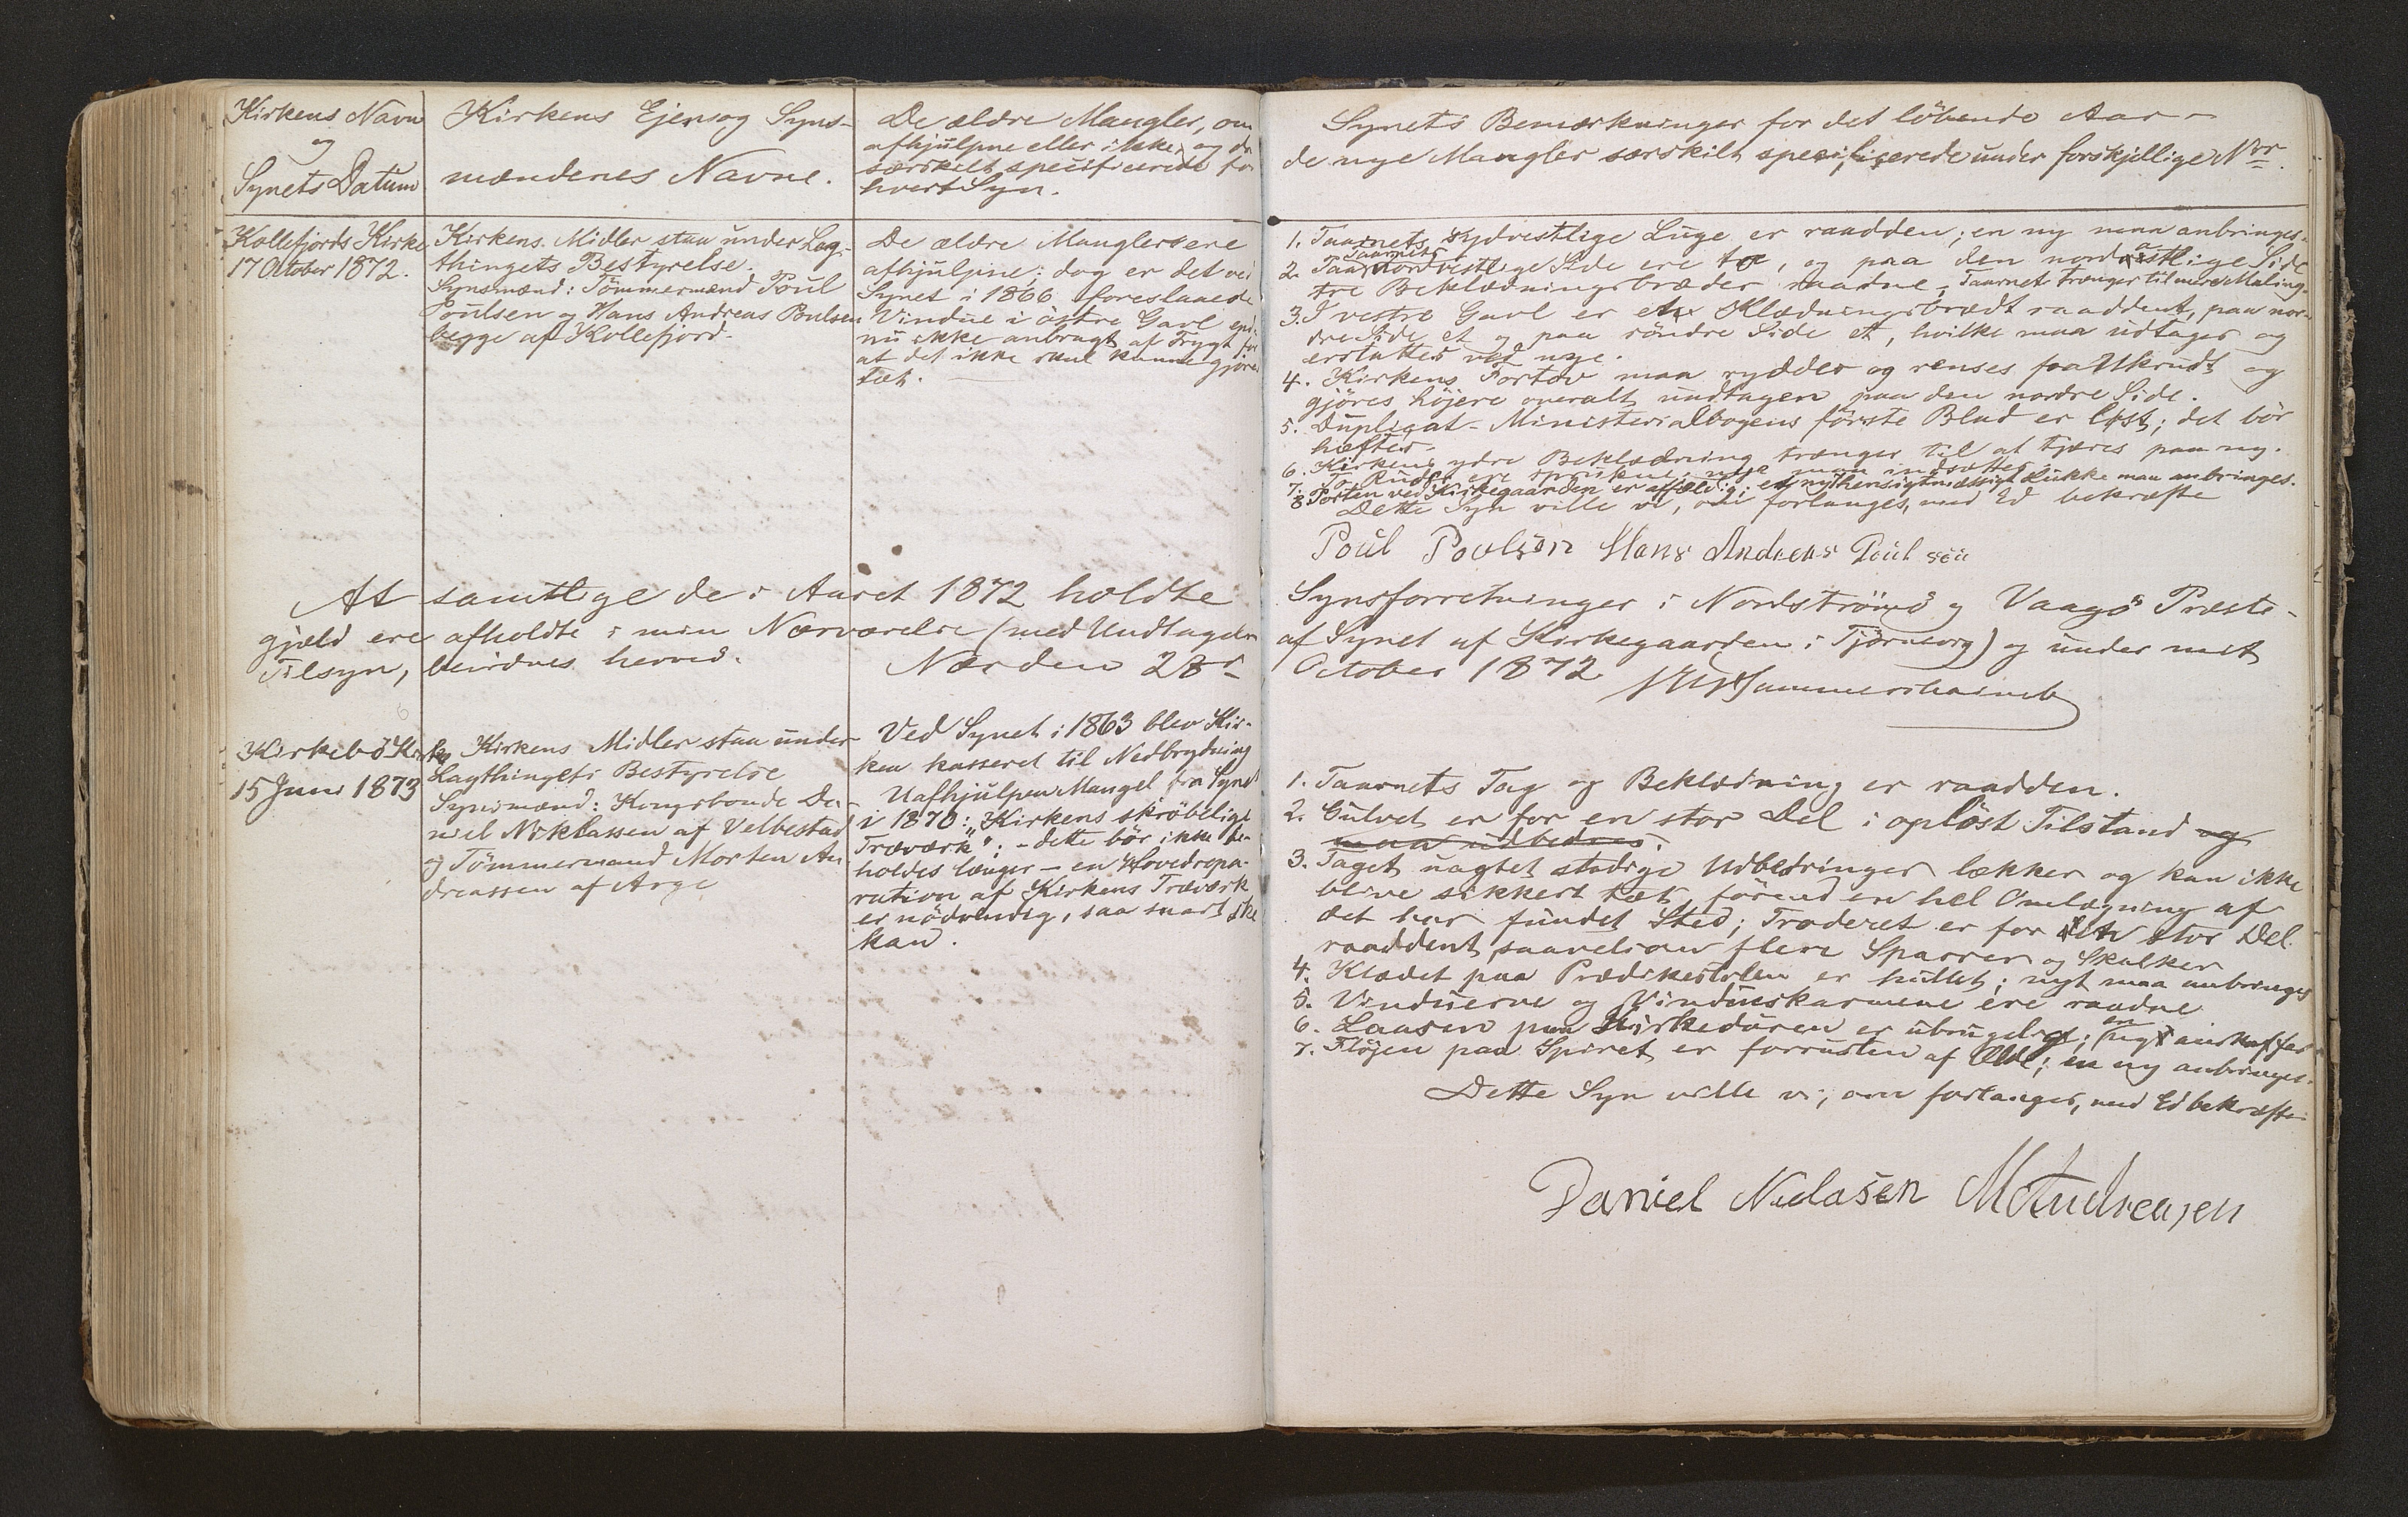 Kirkens Navn
og
Synets Datum
Kirkens Ejer og Syns-
mændenes Navne.
De ældre Mangler, om
afhjulpne eller ikke, og de
særskelt specificerede for
hvert Syn.
Synets Bemærkninger for det löbende Aar -
de nye Mangler særskilt specificerede under forskjellige Nor.
Kollefjords Kirke
17 October 1872.
Kirkens Midler staa under Lag-
thingets Bestyrelse.
Synsmænd: Tömmermænd Poul
Poulsen og Hans Andreas Poulsen
begge af Kollefjord.
De ældre Mangler ere
afhjulpne; dog er det ved
Synet i 1866 foreslaaede
Vindue i östre Gavl end-
nu ikke anbragt af Frygt for
at det ikke skul kunne gjöres
tæt.
1. Taarnets sydvestlige Luge er raadden; en ny maa anbringes.
2. Taarnets nordvestlige Side ere to, og paa den nordöstlige Side
tre Beklædningsbræder raadne; Taarnet trænger til mere Maling.
3. I vestre Gavl er et Klædningsbrædt raaddent, paa nor-
dre Side et og paa söndre Side et, hvilke maa udtages og
erstattes ved nye.
4. Kirkens Fortov maa ryddes og renses for Ukrudt og
gjöres höjere overalt undtagen paa den nordre Side.
5. Duplicat-Ministerialbogens förste Blad er löst; det bör
hæftes.
6. Kirkens ydre Beklædning trænger til at tjæres paa ny.
7. To Ruder ere sprukne; nye maa indsættes.
8 Porten ved Kirkegaarden er affældig; et nyt hensigtmæssigt Lukke maa anbringes.
Dette Syn ville vi, om forlanges, med Ed bekræfte
Poul Poulsen Hans Andreas Poulsen
At samtlige de i Aaret 1872 holdte Synsforretninger i Nordströmö og Vaagö Præste-
gjæld ere afholdte i min Nærværelse (med Undtagelse af Synet af Kirkegaarden i Tjörnevig) og under mit
Tilsyn, bevidnes herved. Næs den 28d October 1872 Hammershaimb
Kirkebö Kirke
15 Juni 1873
Kirkens Midler staa under
Lagthingets Bestyrelse
Synsmænd: Kongsbonde Da-
niel Niklassen af Velbestad
og Tömmermand Morten An-
dreassen af Arge
Ved Synet i 1863 blev Kir-
ken kasseret til Nedbrydning
Uafhjulpen Mangel fra Synet
i 1870: "Kirkens skröbelige
Træværk"; - dette bör ikke be-
holdes længer - en Hovedrepa-
ration af Kirkens Træværk
er nödvendig, saa snart ske
kan.
1. Taarnets Tag og Beklædning er raadden.
2. Gulvet er for en stor Del i oplöst Tilstand og
maa udbedres.
3. Taget uagtet stadige Udbedringer lækker og kan ikke
blive sikkert tæt, förend en hel Omlægning af
det har fundet Sted; Træderet er for en stor Del
raaddent saavelsom flere Sparrer og Skalker
4. Klædet paa Prædikestolen er hullet; nyt maa anbringes
5. Vinduerne og Vindueskarmene ere raadne
6. Laasen paa Kirkedören er ubrugelig; en ny anskaffes
7. Flöjen paa Spiret er forrusten af Ælde; en ny anbringes.
Dette Syn ville vi, om forlanges, med Ed bekræfte
Daniel Niclasen M Andreasen